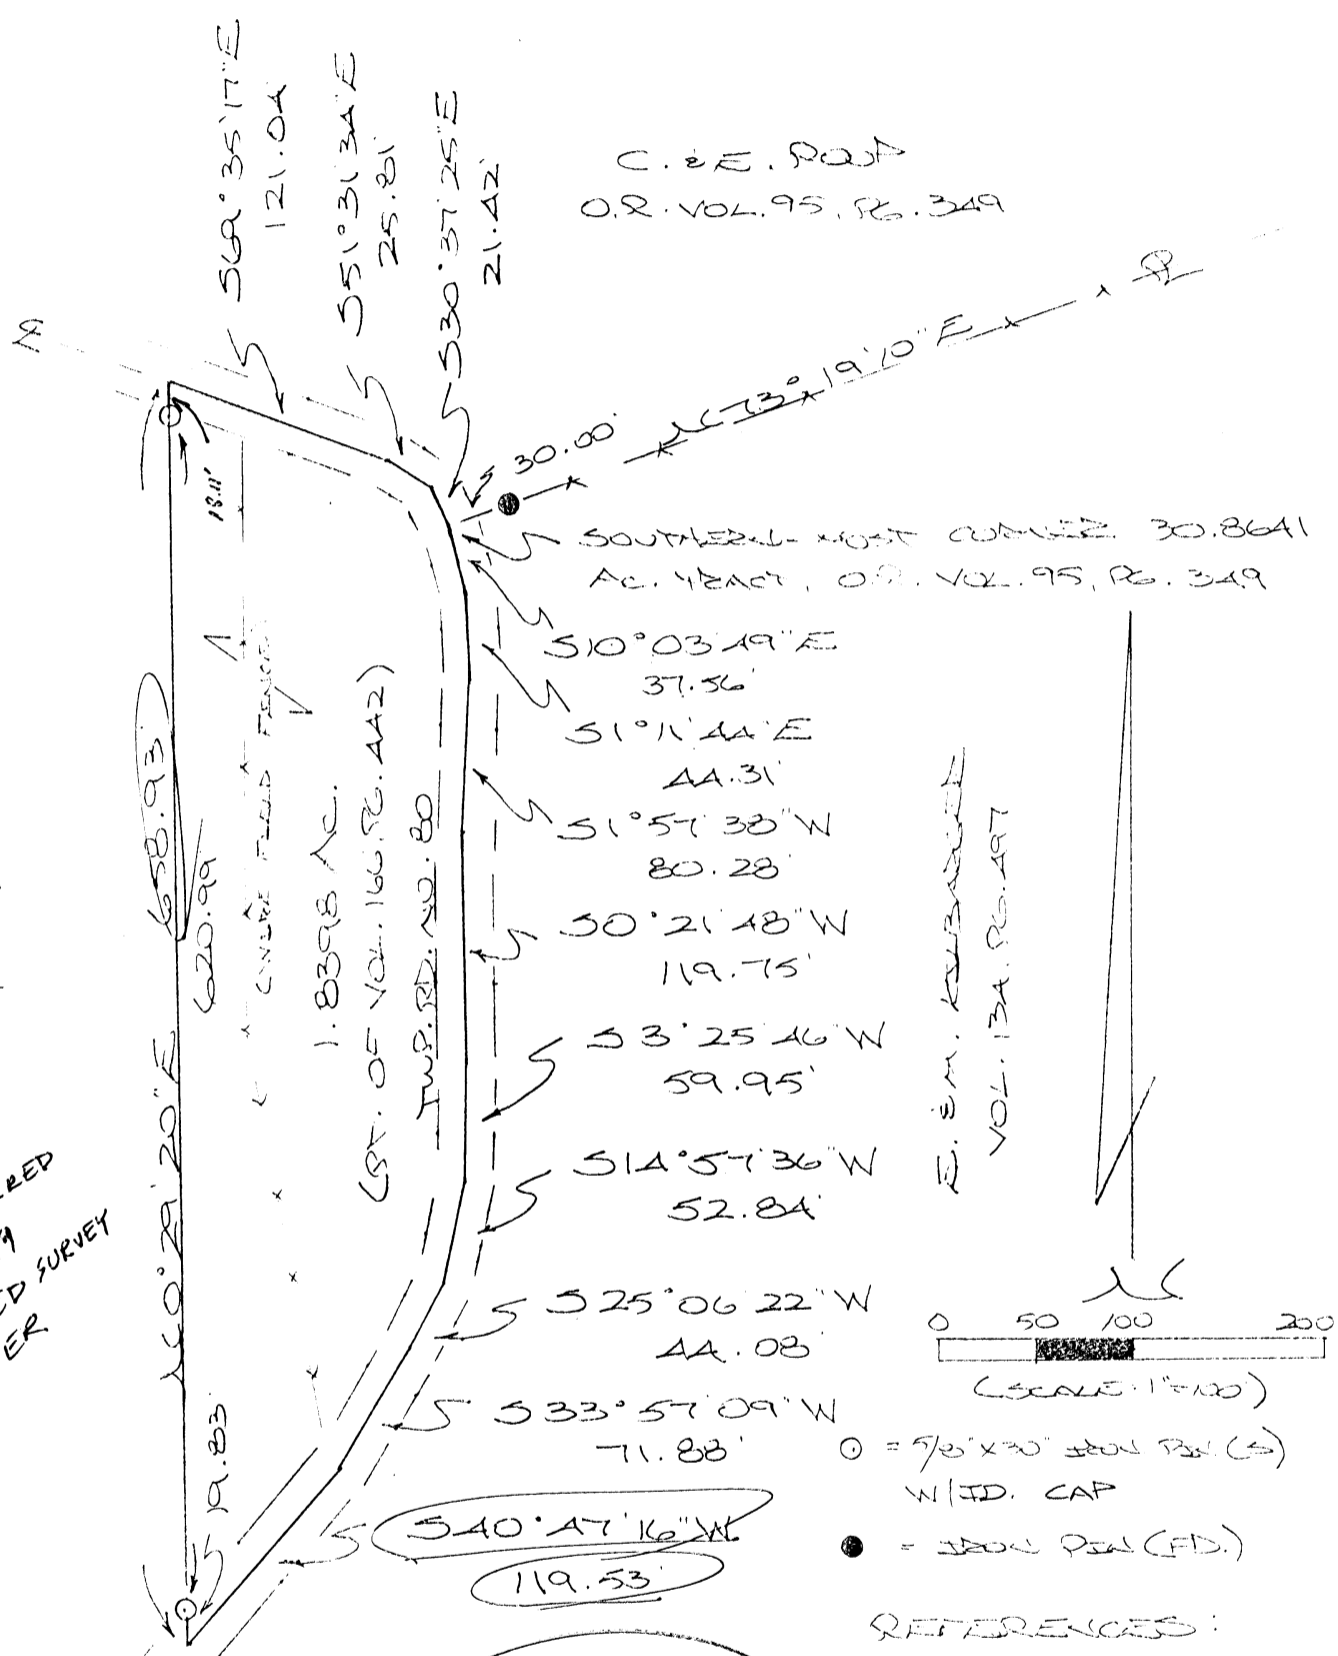 S69°35'17"E
121.04'
S51°31'34"E
25.81'
S30°37'25"E
21.42'
C. & E. ROUP
O.R. VOL. 95, PG. 349
℄
N73°19'10"E
30.00'
18.11'
SOUTHERN-MOST CORNER 30.8641
AC. TRACT, O.R. VOL. 95, PG. 349
S10°03'49"E
37.56'
S1°11'44"E
44.31'
S1°57'38"W
80.28'
S0°21'48"W
119.75'
S3°25'46"W
59.95'
S14°57'36"W
52.84'
S25°06'22"W
44.08'
S33°57'09"W
71.88'
S40°47'16"W
119.53'
658.93'
620.99'
N0°29'20"E
19.83'
(WIRE FIELD FENCE)
1.8398 AC.
(PT. OF VOL. 166, PG. 442)
TWP. RD. NO. 80
E. & M.
VOL. 134, PG. 497
SURVEY
N
0 50 100 200
(SCALE: 1"=100')
= 5/8"X30" IRON PIN (S)
W/ID. CAP
= IRON PIN (FD.)
REFERENCES: